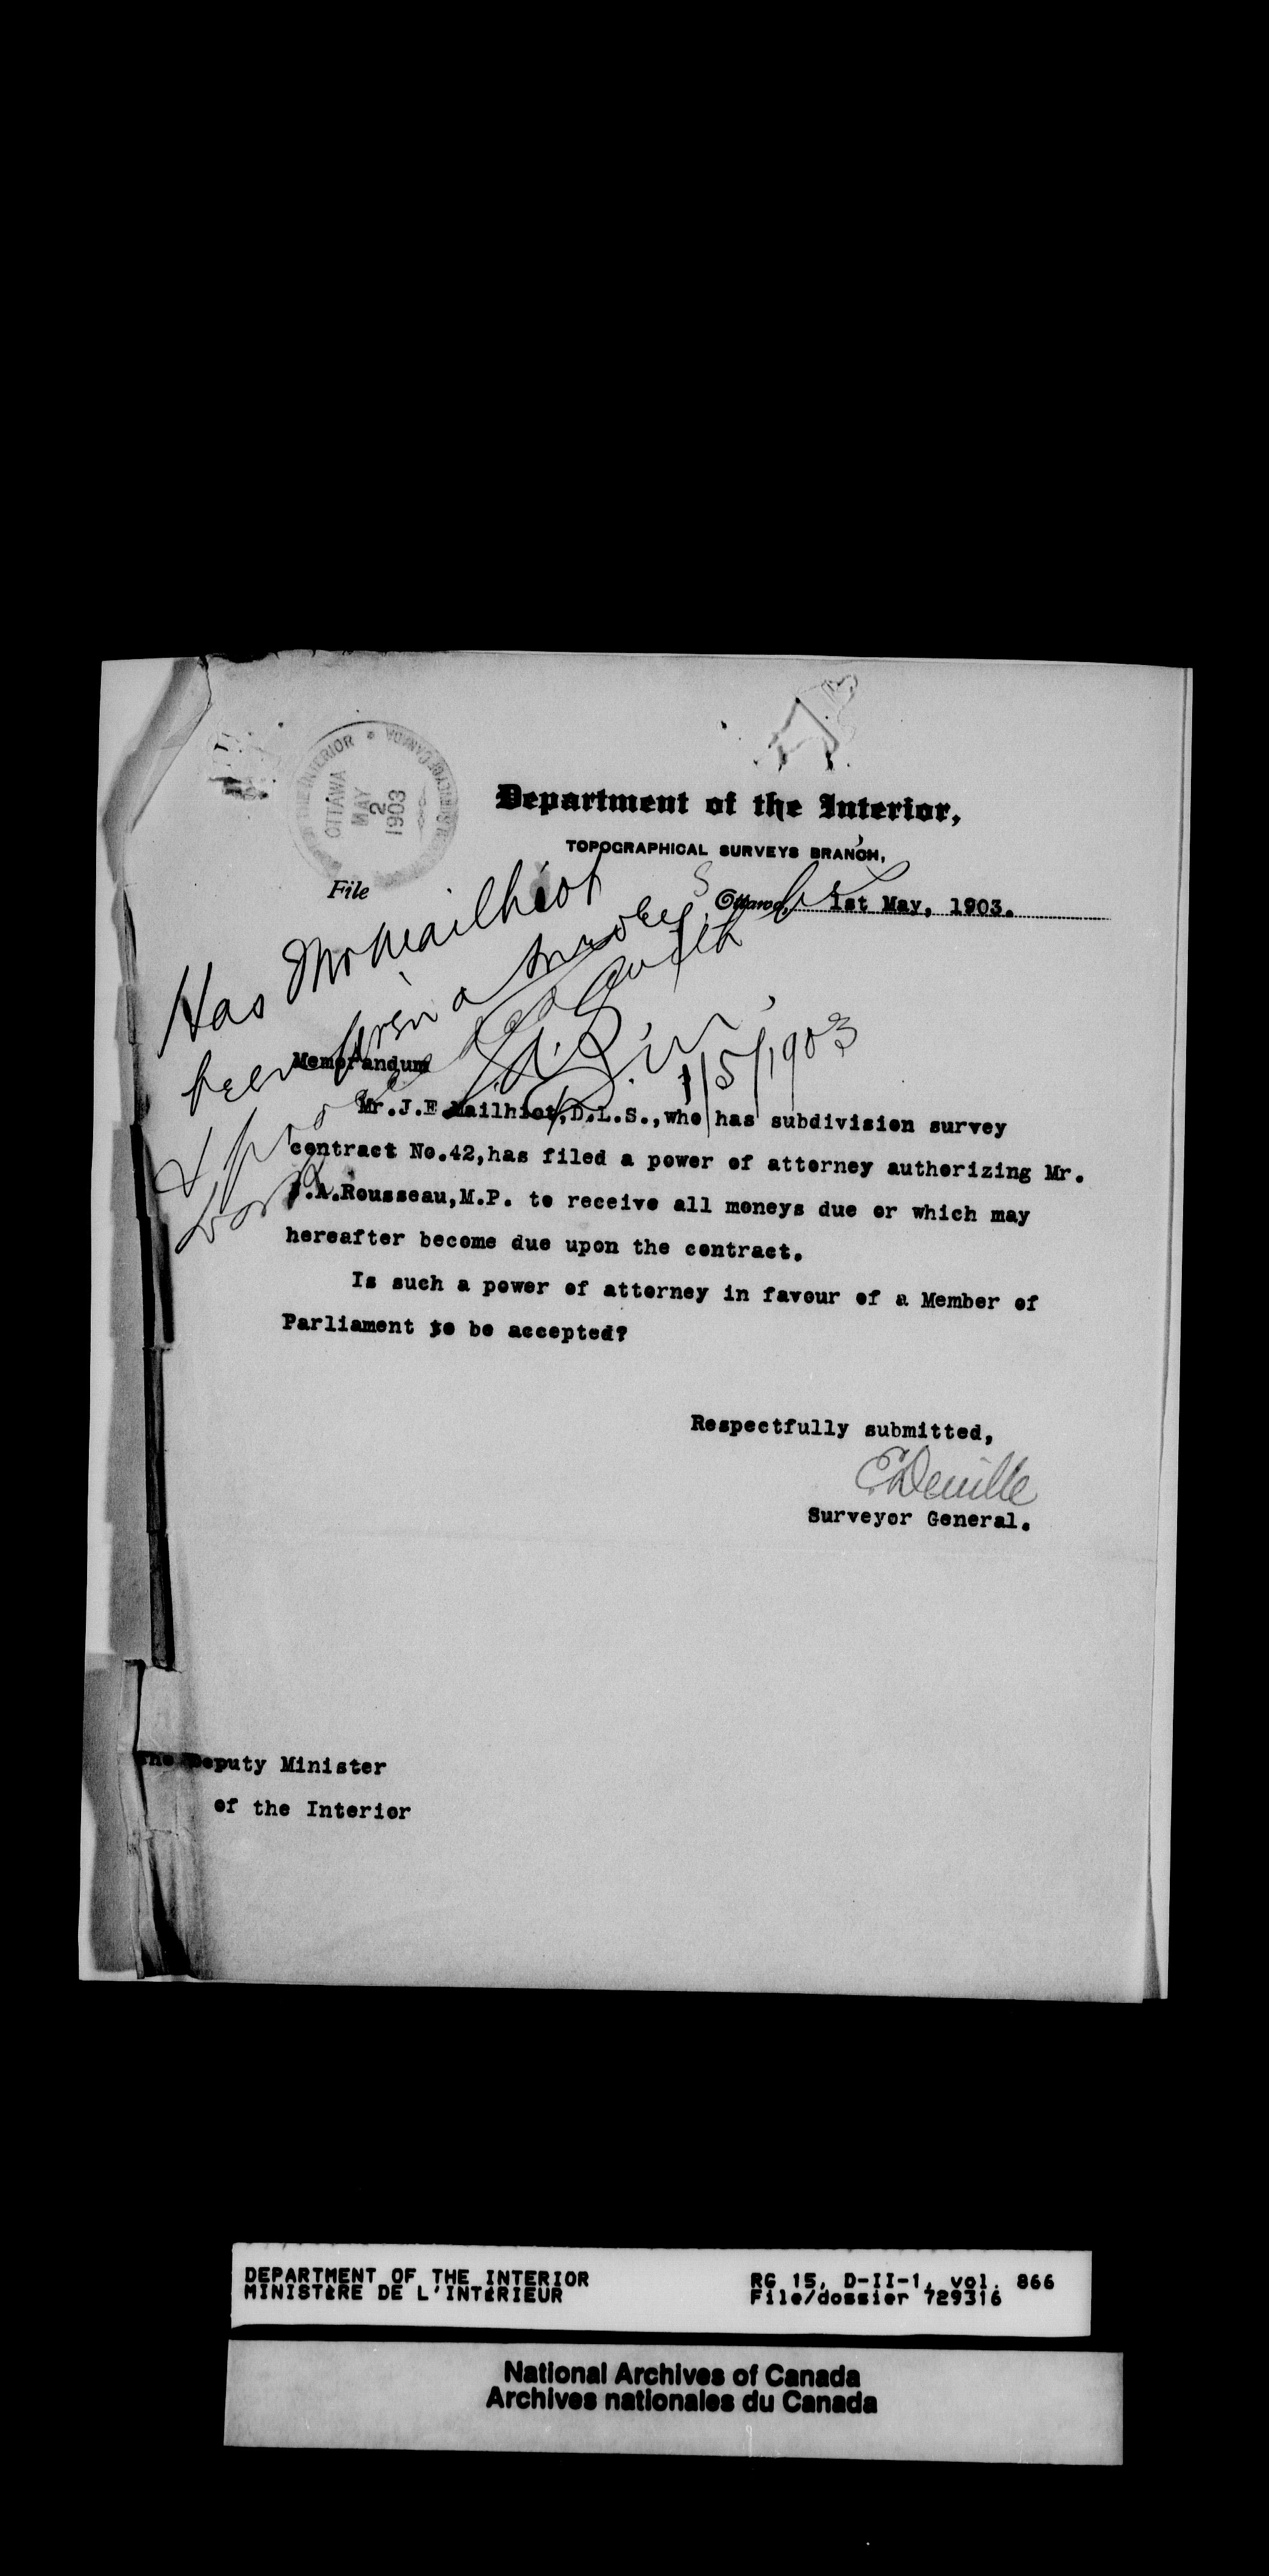 OTTAWA
MAY
2
1903
Department of the Interior,
TOPOGRAPHICAL SURVEYS BRANCH,
File
Ottawa, 1st May, 1903.
Has Mr Mailhiot
been given a
1/5/1903
Memorandum
Mr.J.E.Mailhiot,D.L.S.,who has subdivision survey
contract No.42,has filed a power of attorney authorizing Mr.
.A.Rousseau,M.P. to receive all moneys due or which may
hereafter become due upon the contract.
Is such a power of attorney in favour of a Member of
Parliament to be accepted?
Respectfully submitted,
E Deville
Surveyor General.
The Deputy Minister
of the Interior
DEPARTMENT OF THE INTERIOR
MINISTÈRE DE L'INTÉRIEUR
RG 15, D-II-1, vol. 866
File/dossier 729316
National Archives of Canada
Archives nationales du Canada